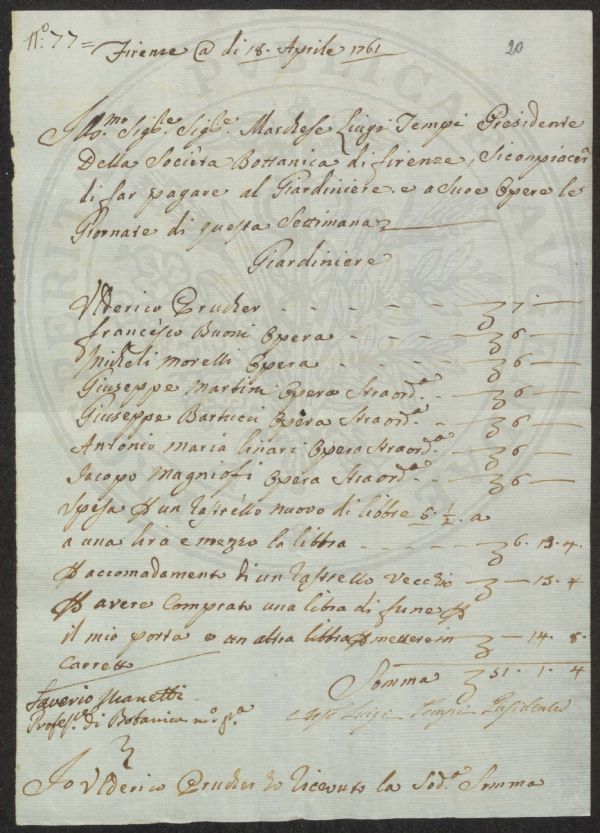 N.° 77 =
20
Firenze @ di 18. Aprile 1761
Ill.mo Sig.re Sig.re Marchese Luigi Tempi Presidente
Della Società Bottanica di firenze, Si compiacerà
di far pagare al Giardiniere e a Suoe Opere le
Giornate di questa Settimana
Giardiniere
Vlderico Prucker - - - - - 7 . —
francesco Buoni Opera - - - 6 —
Micheli Morelli Opera - - - 6 —
Giuseppe Martini Opera Straord.a - - 6 —
Giuseppe Bartucci Opera Straord.a - - 6 —
Antonio Maria Linari Opera Straord.a - 6 —
Jacopo Magniofi Opera Straord.a - - 6 —
Spesa p un Rastrello nuovo di libbre 5. 1/2. a
a una lira e mezzo la libbra - - - - - 6. 13. 4.
p accomadamento di un Rastrello Vecchio — 13. 4
p avere Comprato una libra di fune p
il mio porta e un altra libbra p mettere in — 14. 8.
Carretto
Somma 51. 1. 4
Saverio Manetti
Profes.re di Botanica m.o p.a
Luigi Tempi Presidente
Io Vlderico Prucker ho Ricevuto la Sod.a Somma